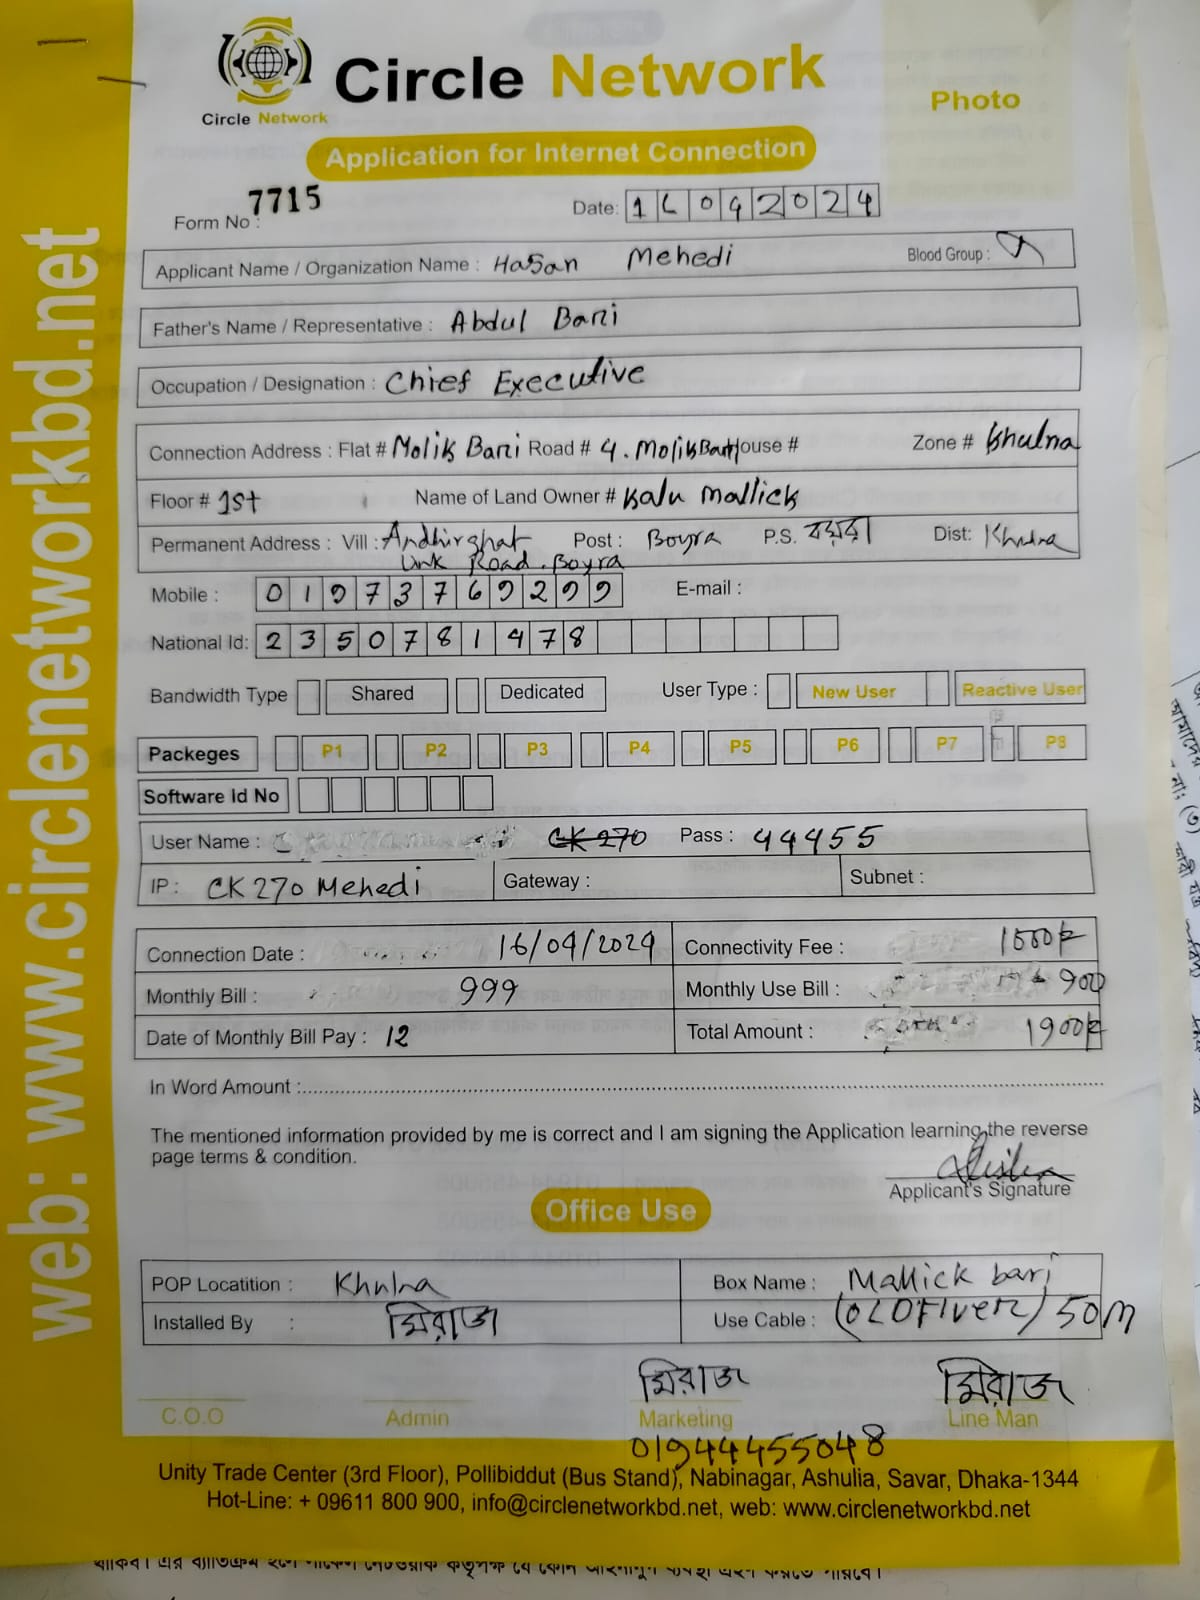 Circle Network
Circle Network
Photo
Application for Internet Connection
Form No : 7715 Date: 16 04 2024
Applicant Name / Organization Name : Hasan Mehedi Blood Group :
Father's Name / Representative : Abdul Bari
Occupation / Designation : Chief Executive
Connection Address : Flat # Molik Bari Road # 4. Molik Bari House # Zone # Khulna
Floor # 1st Name of Land Owner # Kalu Mallick
Permanent Address : Vill : Andhirghat Post : Boyra P.S. বয়রা Dist: Khulna
Link Road. Boyra
Mobile : 01973769299 E-mail :
National Id: 2350781478
Bandwidth Type Shared Dedicated User Type : New User Reactive User
Packeges P1 P2 P3 P4 P5 P6 P7 P8
Software Id No
User Name : CK 270 Pass : 44455
IP : CK 270 Mehedi Gateway : Subnet :
Connection Date : 16/04/2024 Connectivity Fee : 1000
Monthly Bill : 999 Monthly Use Bill : 900
Date of Monthly Bill Pay : 12 Total Amount : 1900
In Word Amount :
The mentioned information provided by me is correct and I am signing the Application learning the reverse
page terms & condition.
Applicant's Signature
Office Use
POP Locatition : Khulna Box Name : Mallick bari
Installed By : মিরাজ Use Cable : 50M
মিরাজ মিরাজ
C.O.O Admin Marketing Line Man
01944455048
Unity Trade Center (3rd Floor), Pollibiddut (Bus Stand), Nabinagar, Ashulia, Savar, Dhaka-1344
Hot-Line: + 09611 800 900, info@circlenetworkbd.net, web: www.circlenetworkbd.net
web: www.circlenetworkbd.net